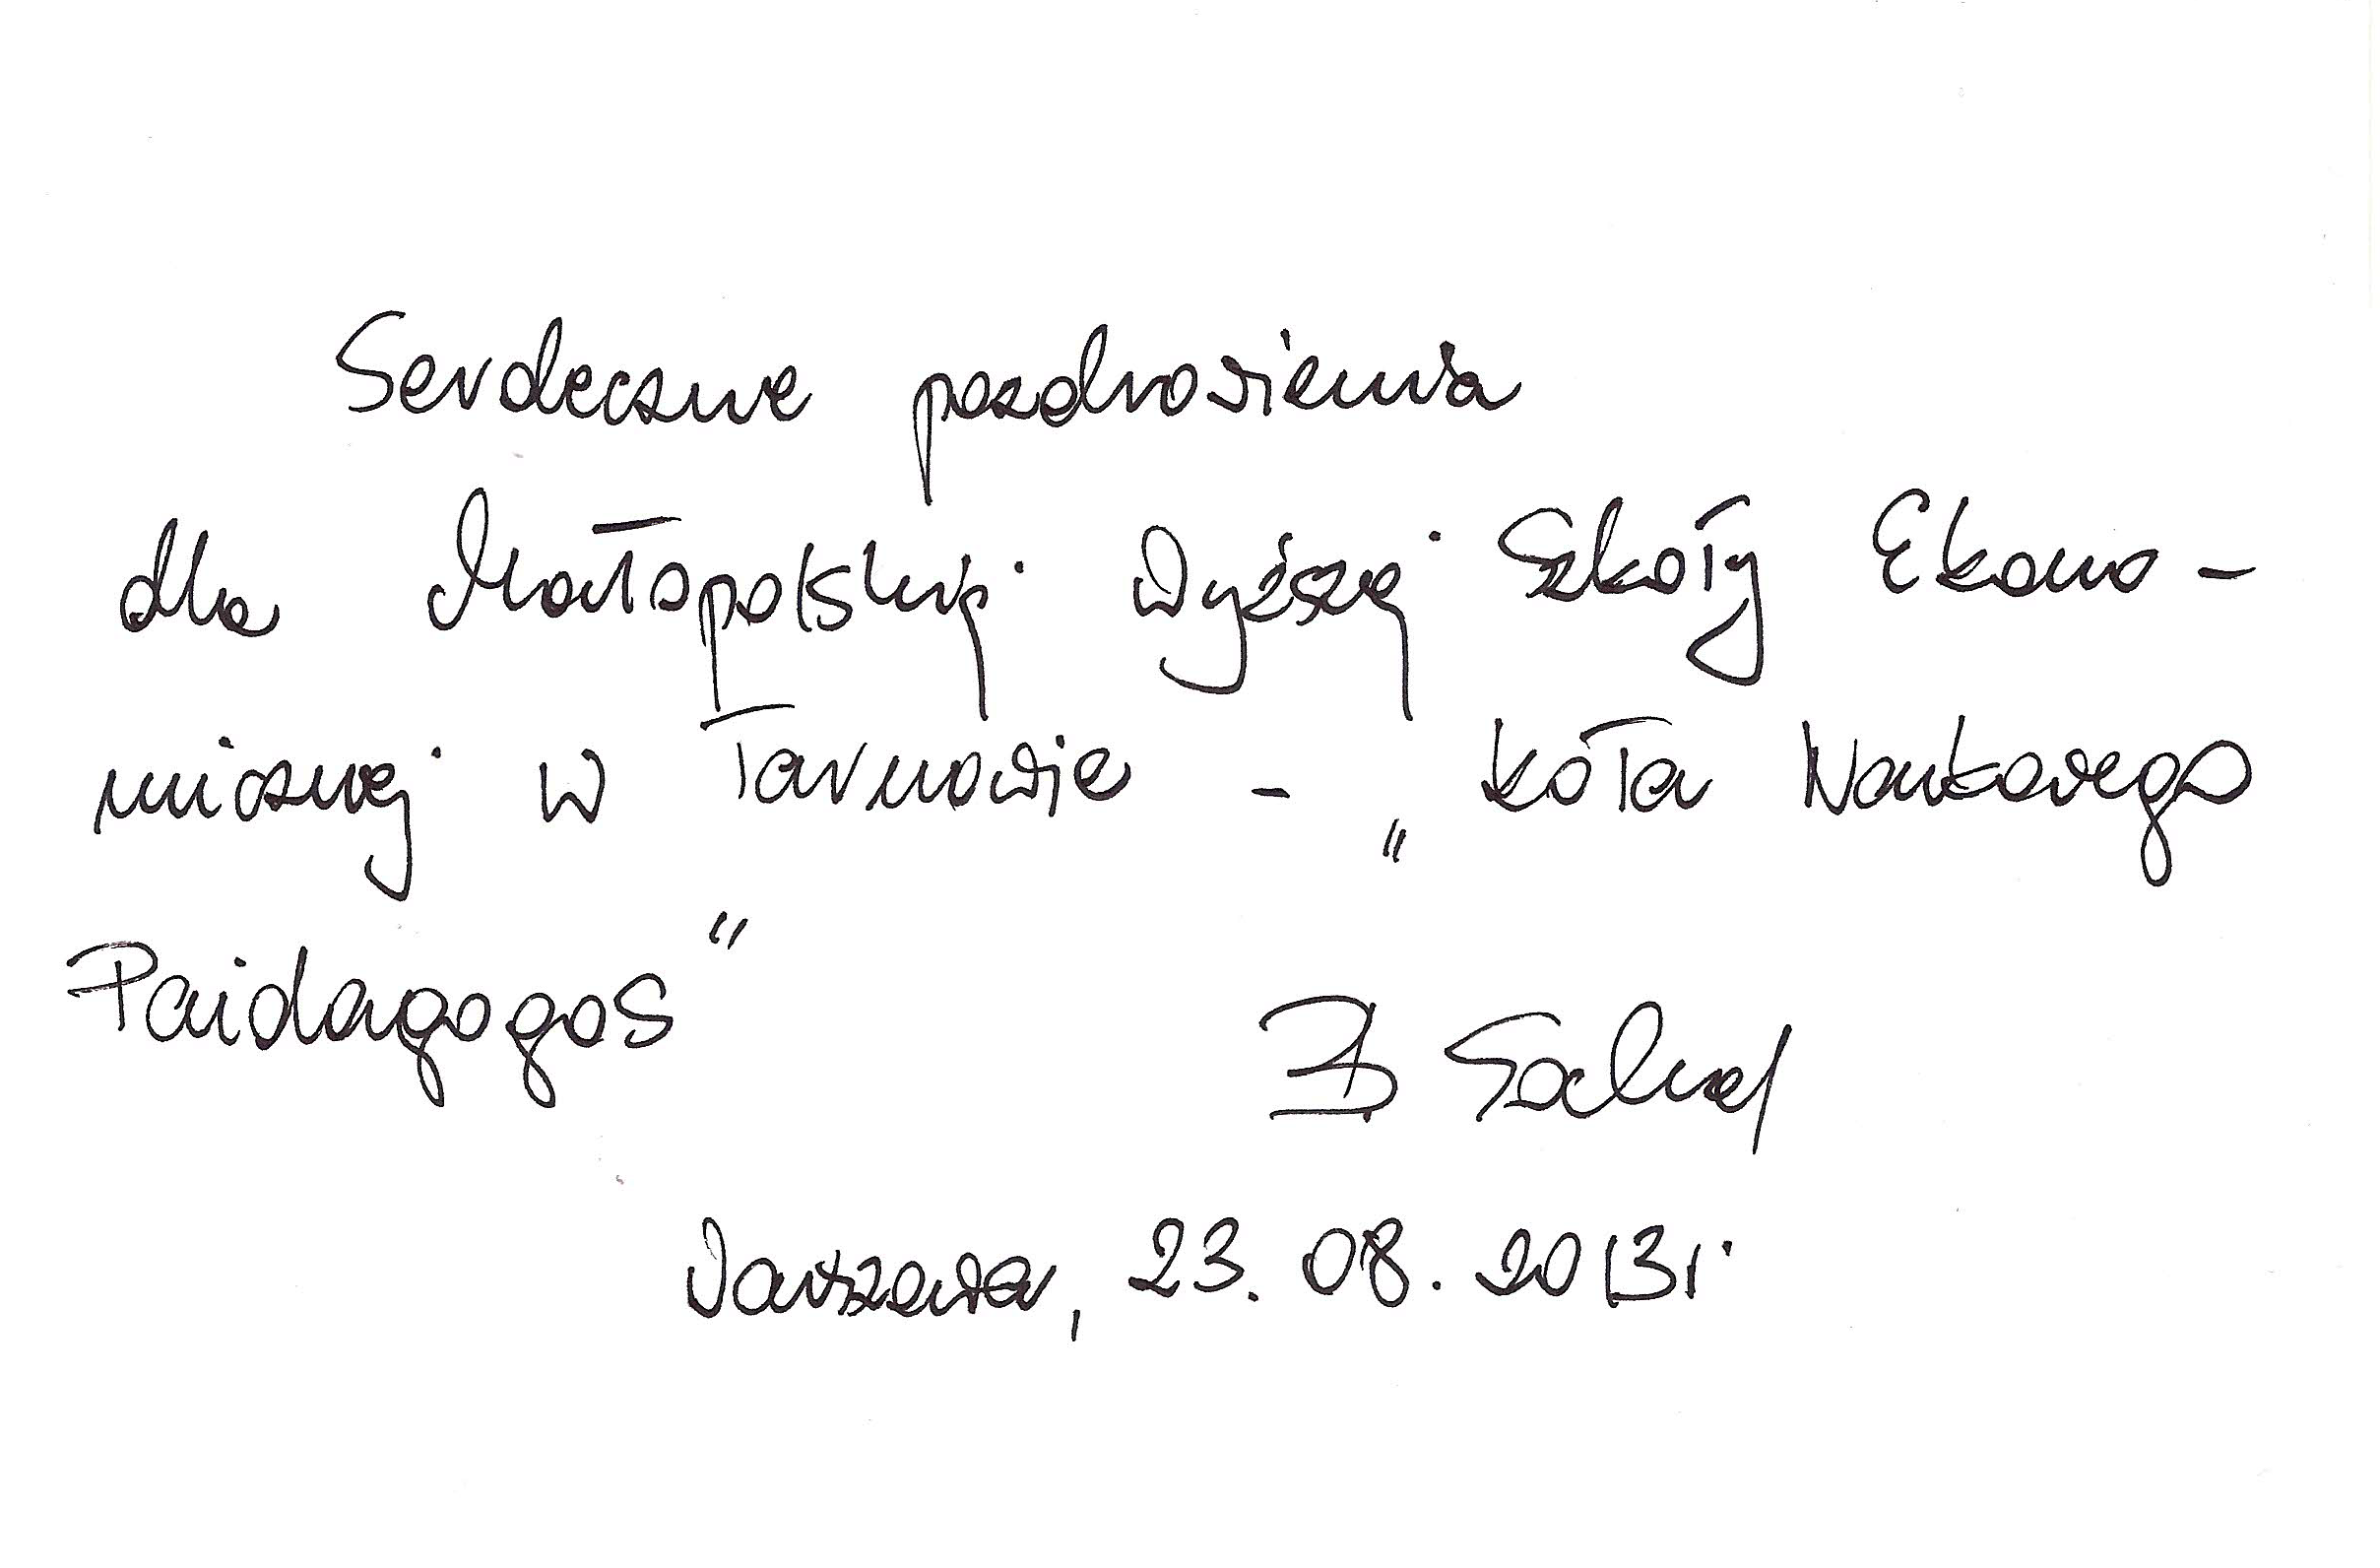 Serdeczne pozdrowienia
dla Małopolskiej Wyższej Szkoły Ekono-
micznej w Tarnowie - „Koła Naukowego
Paidagogos"
B
Warszawa, 23.08.2013r.